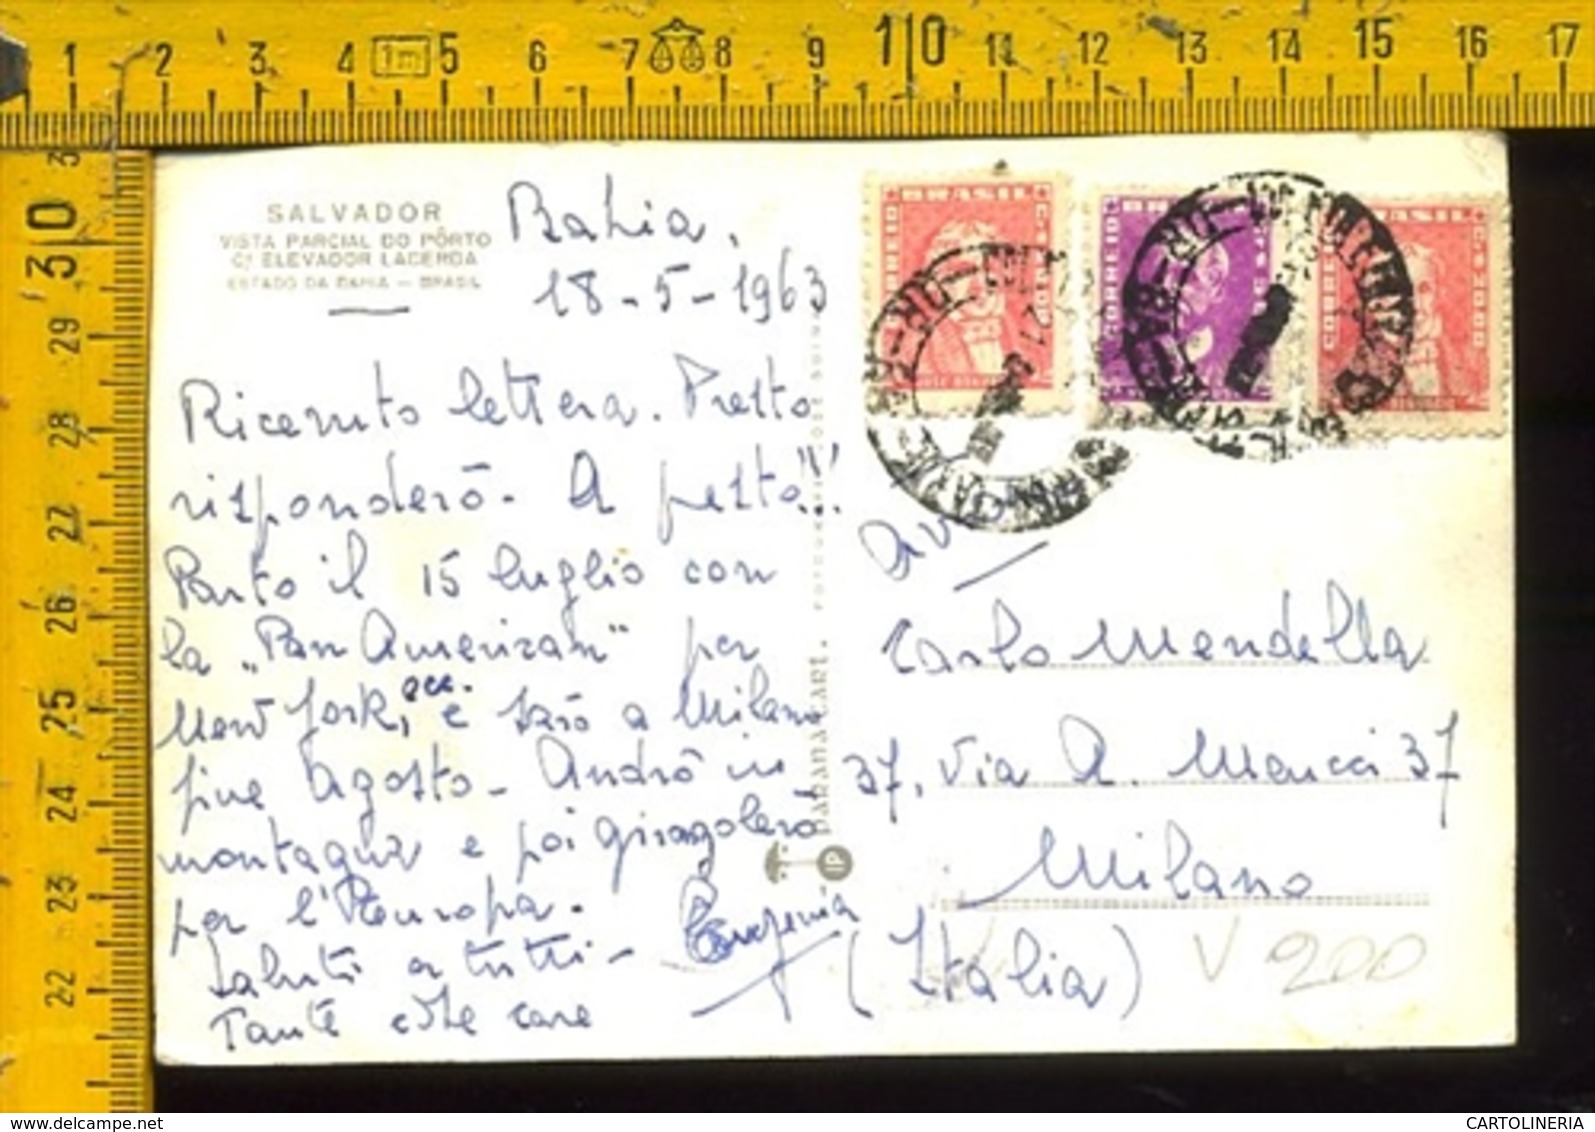 1 2 3 4 1m 5 6 7 8 9 10 11 12 13 14 15 16 17
30
29
28
27
26
25
24
23
22
SALVADOR
VISTA PARCIAL DO PÔRTO
C/ ELEVADOR LACERDA
ESTADO DA BAHIA — BRASIL
Bahia,
18-5-1963
Ricevuto lettera. Presto
risponderò. A presto!!!
Parto il 15 luglio con
la "Pan American" per
New York, ecc. e sarò a Milano
fine Agosto - Andrò in
montagna e poi giragolerò
per l'Europa.
Saluti a tutti -
Tante cose care
Eugenia
PARANACART.
BRASIL
CORREIO
CORREIO
BRASIL
CORREIO
Carlo Mendella
37, Via A. Meucci 37
Milano
(Italia)
V 200
CARTOLINERIA